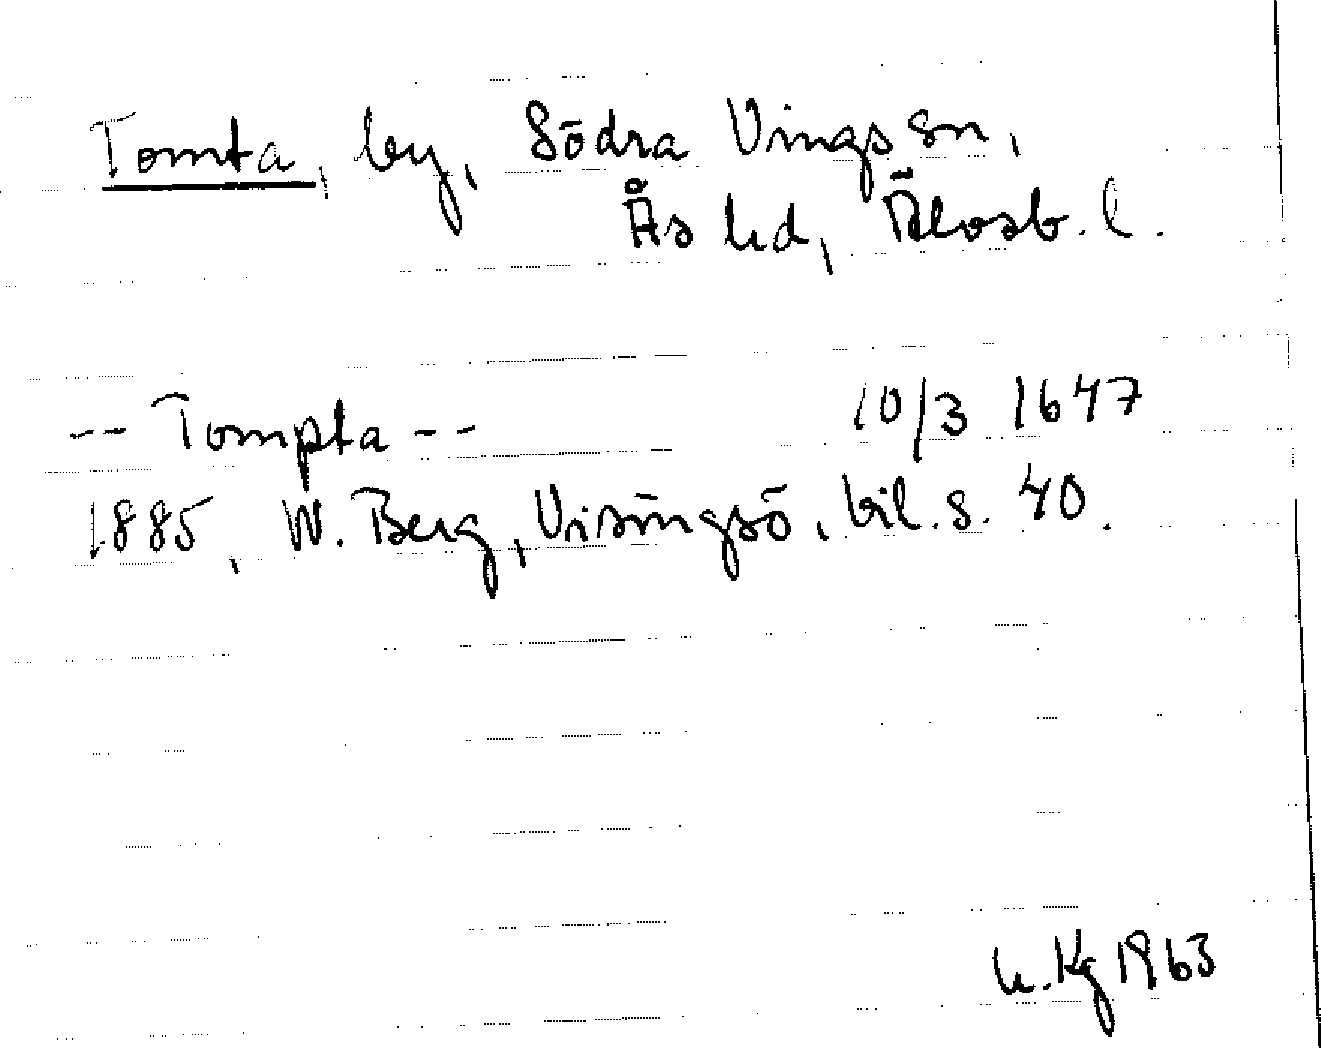 Tomta, by, Södra Vings sn,
Ås hd, Älvsb. l.
-- Tompta -- 10/3 1647
1885, W. Berg, Visingsö, bil. s. 40.
h. Kg 1963